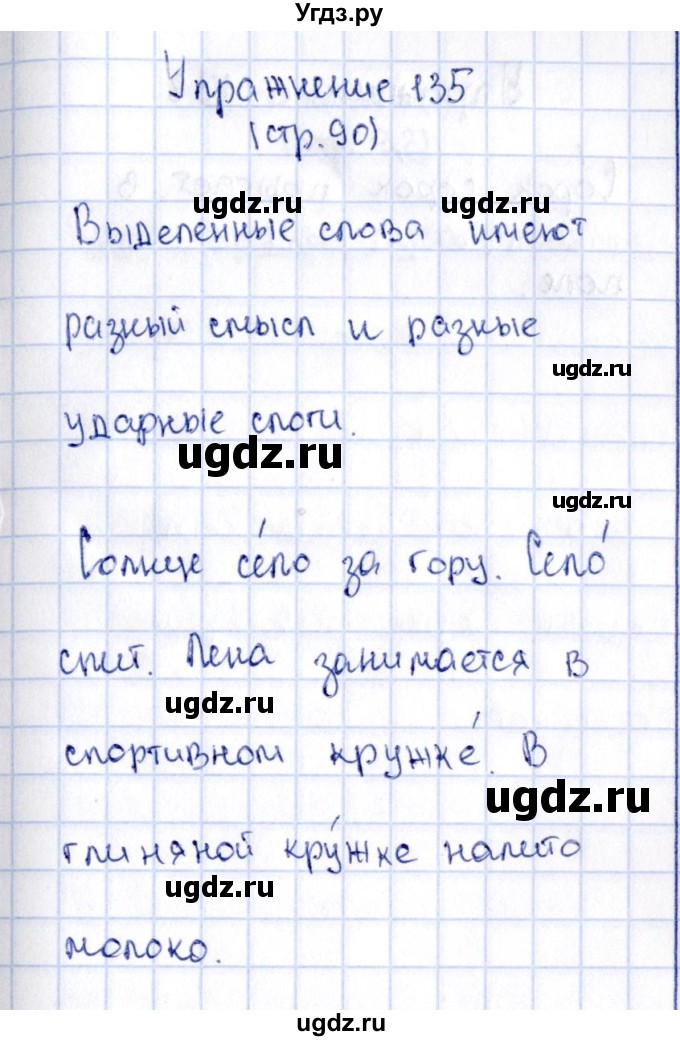 Угдз.ру
Упражнение 135
(стр. 90)
ugdz.ru ugdz.ru
Выделенные слова имеют
разный смысл и разные
ugdz.ru
ударные слоги.
ugdz.ru
ugdz.ru
Солнце се́ло за гору. Село́
спит. Лена занимается в
ugdz.ru
спортивном кружке́. В
ugdz.ru
глиняной кру́жке налито
ugdz.ru
молоко.
ugdz.ru